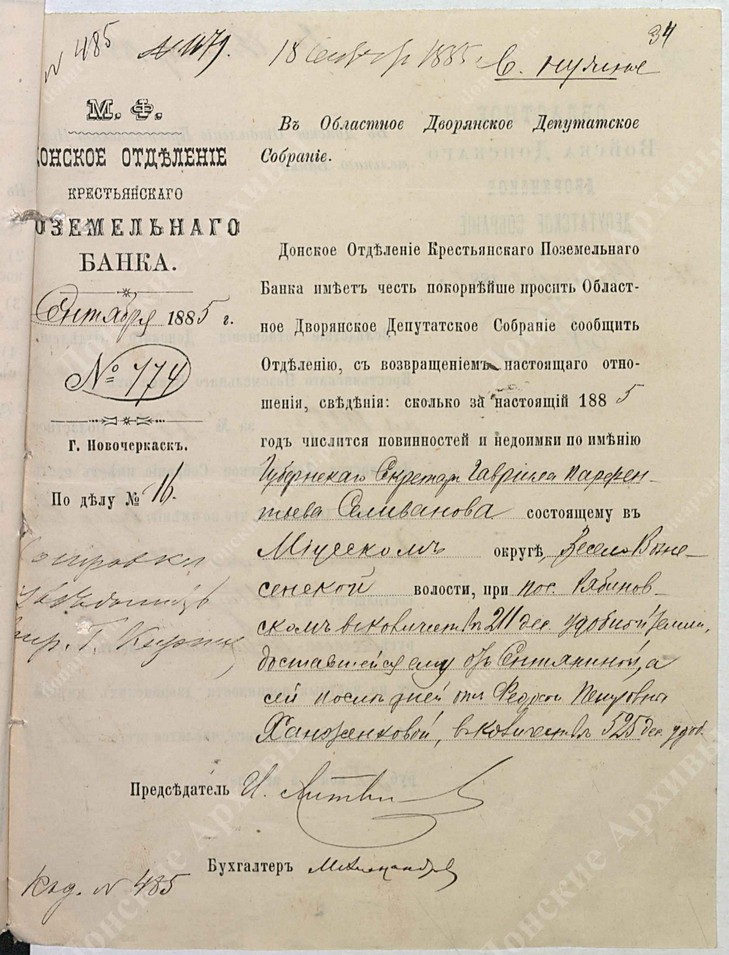 34
№ 485
№ 1179.
18 сентяб 1885 г.
М. Ф.
ДОНСКОЕ ОТДѢЛЕНІЕ
КРЕСТЬЯНСКАГО
ПОЗЕМЕЛЬНАГО
БАНКА.
Сентября 1885 г.
№ 774
Г. Новочеркаскъ.
По дѣлу № 16.
Въ Областное Дворянское Депутатское
Собраніе.
Донское Отдѣленіе Крестьянскаго Поземельнаго
Банка имѣетъ честь покорнѣйше просить Област-
ное Дворянское Депутатское Собраніе сообщить
Отдѣленію, съ возвращеніемъ настоящаго отно-
шенія, свѣдѣнія: сколько за настоящій 1885
годъ числится повинностей и недоимки по имѣнію
Губернскаго Секретаря Гавріила Парфен-
тьева Селиванова состоящему въ
Міусскомъ округѣ, Весело Возне-
сенской волости, при пос. Рябинов-
скомъ въ количествѣ 211 дес. удобной земли,
доставшейся ему отъ Сентяниной, а
сей послѣдней отъ Федосьи Петровны
Ханженковой, въ количествѣ 525 дес. удоб.
Предсѣдатель И.
Бухгалтеръ
№ 485